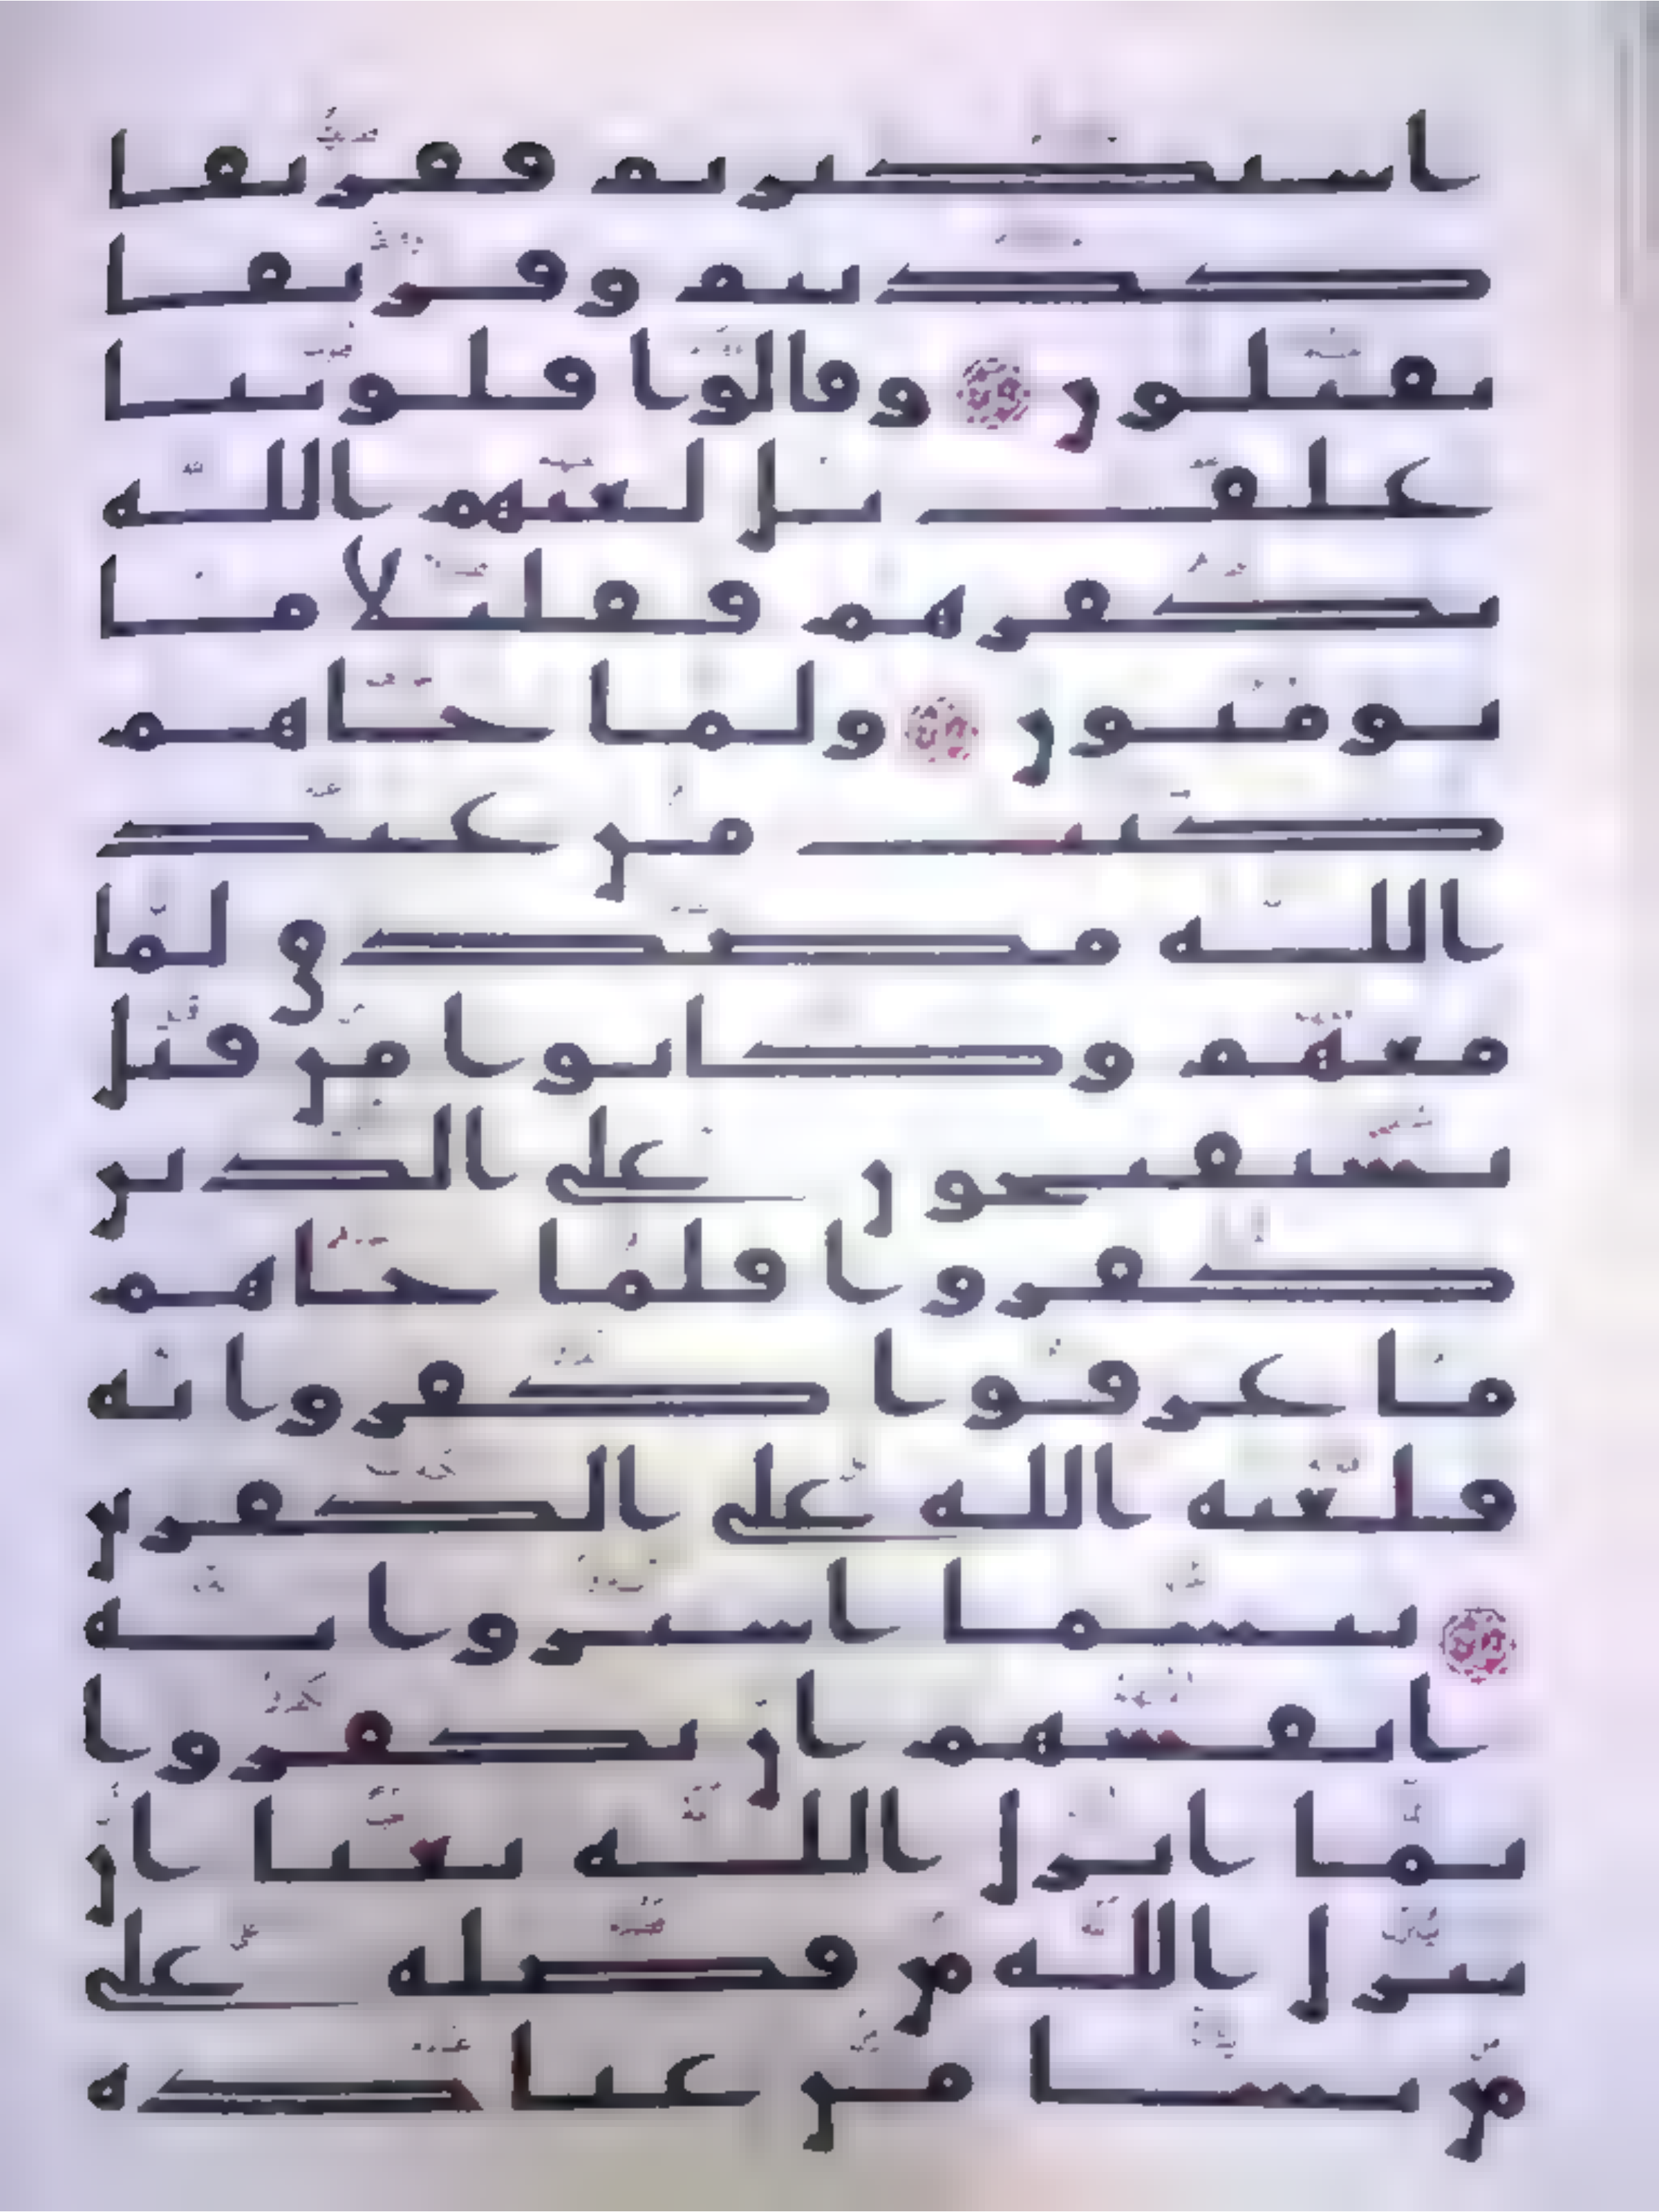 استكبرتم ففريقا
كذبتم وفريقا
تقتلون وقالوا قلوبنا
غلف بل لعنهم الله
بكفرهم فقليلا ما
يومنون ولما جاهم
كتب من عند
الله مصدق لما
معهم وكانوا من قبل
يستفتحون على الذين
كفروا فلما جاهم
ما عرفوا كفروا به
فلعنه الله على الكفرين
بئسما اشتروا به
انفسهم ان يكفروا
بما انزل الله بغيا ان
ينزل الله من فضله على
من يشا من عباده